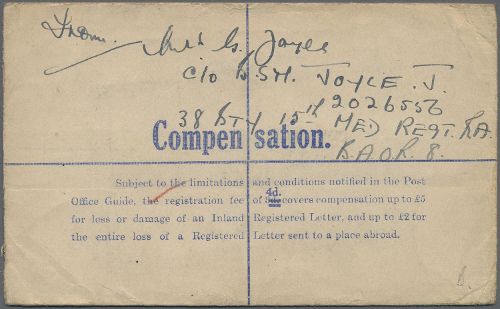 From.
Mrs G. Joyce
c/o B.S.M. JOYLE. J.
2026556
38 BTY 15TH MED REGT. R.A.
B.A.O.R. 8.
Compensation.
Subject to the limitations and conditions notified in the Post
Office Guide, the registration fee of 3d. 4d. covers compensation up to £5
for loss or damage of an Inland Registered Letter, and up to £2 for
the entire loss of a Registered Letter sent to a place abroad.